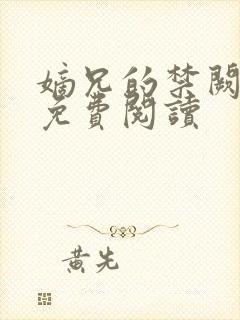 嫡兄的禁闕
免費閱讀
黃先